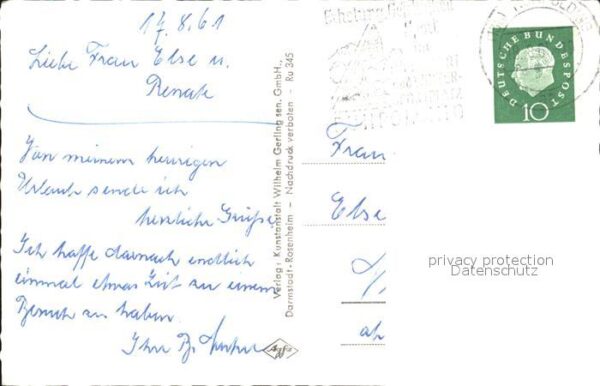 17.8.61
Liebe Frau Else u.
Renate
Von meinem heurigen
Urlaub sende ich
herzliche Grüße.
Ich hoffe darnach endlich
einmal etwas Zeit zu einem
Besuch zu haben.
Ihr
Verlag: Kunstanstalt Wilhelm Gerling sen. GmbH.,
Darmstadt-Rosenheim - Nachdruck verboten - Ru 345
Agfa
DEUTSCHE BUNDESPOST
10
Frau
Else
privacy protection
Datenschutz